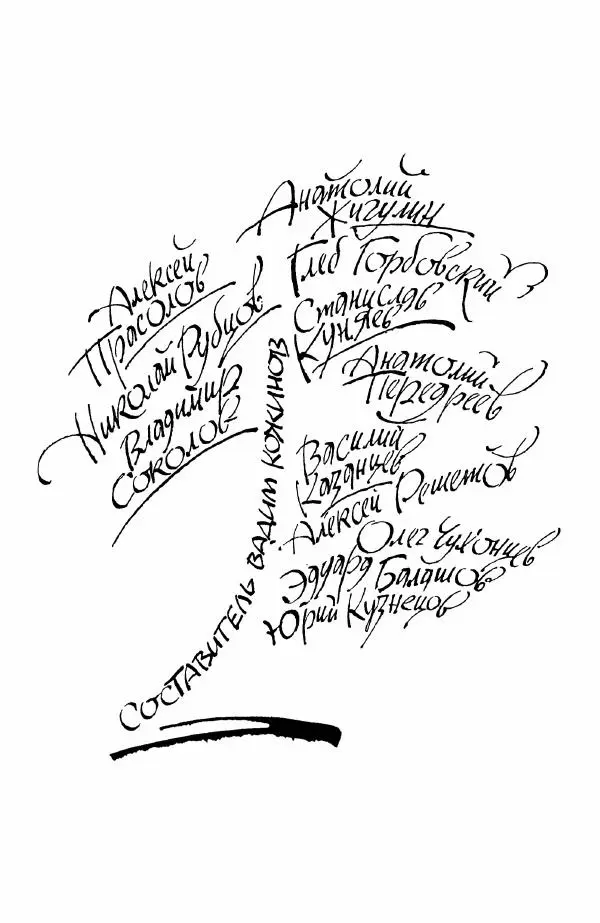 Алексей
Прасолов
Николай Рубцов
Владимир
Соколов
Анатолий
Жигулин
Глеб Горбовский
Станислав
Куняев
Анатолий
Передреев
Василий
Казанцев
Алексей Решетов
Олег Чухонцев
Эдуард Балашов
Юрий Кузнецов
Составитель Вадим Кожинов